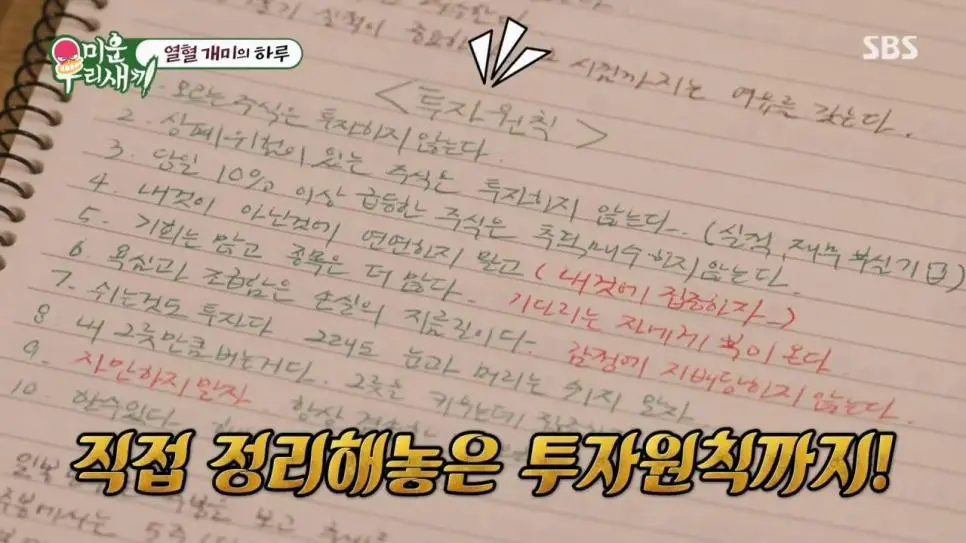 미운 우리새끼
열혈 개미의 하루
SBS
실적이 중요한
시점까지는 여유를 갖는다.
<투자 원칙>
모르는 주식은 투자하지 않는다.
2. 상폐위험이 있는 주식는 투자하지 않는다. (실적, 재무 부실기업)
3. 당일 10% 이상 급등한 주식은 추격매수 하지 않는다.
4. 내것이 아닌것에 연연하지 말고 (내것에 집중하자)
5. 기회는 많고 종목은 더 많다. 기다리는 자에게 복이 온다
6. 욕심과 조급함은 손실의 지름길이다. 감정에 지배당하지 않는다.
7. 쉬는것도 투자다 그래도 눈과 머리는 쉬지 말자
8 내 그릇만큼 버는거다. 그릇을 키우는데
9. 자만하지 말자 항상
10. 한수위다.
직접 정리해놓은 투자원칙까지!
보고
5주